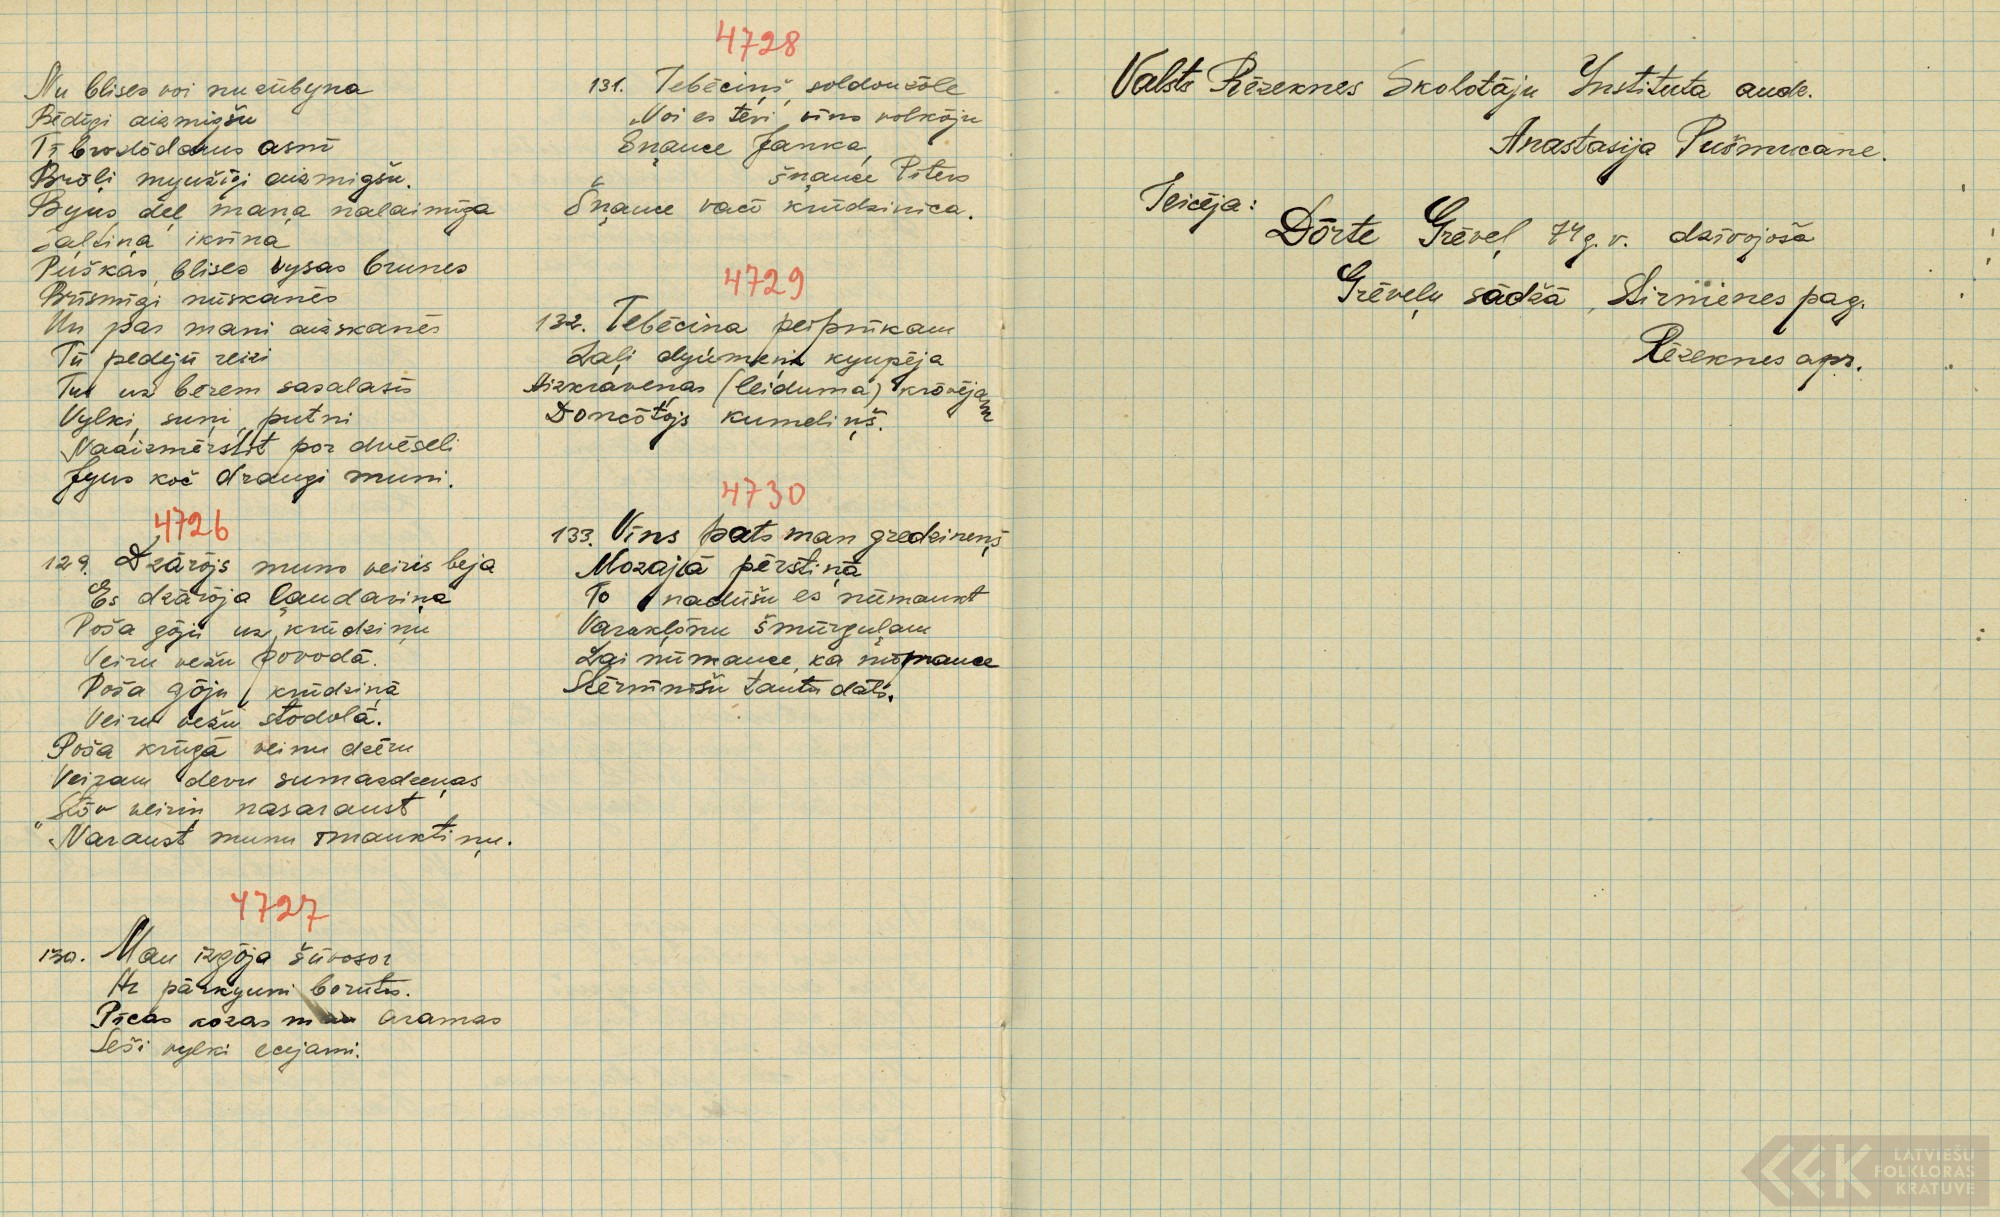 Nu blises voi nu zūbyna
Bēdīgi aizmigšu
Tī brododams asnī
Brōļi myužīgi aizmigšu.
Byus deļ maņa nalaimīga
Šaļtiņa ikviņa
Puškas, blises vysas brunes
Brīsmīgi nūskanēs
Un par mani aizskanēs
Tū pedejū reizi
Tur uz bēzem sasalasīs
Vylki, suni, putni
Naaizmērstit por dvēseli
Jyus koč draugi muni.
4726
129. Dzārōjs muns veirs beja
Es dzārōja ļaudaviņa
Poša gōju uz krūdziņu
Veiru vežu povodā.
Poša gōju krūdziņā
Veiru vežu stodolā.
Poša krūgā veinu dzēru
Veiram devu sumazdzeņas
"Stōv veiriņ nasaraust
Naraust munu mauktiņu.
4727
130. Man izgōja šūvosor
Ar pārkyuni borūts.
Pīcas kozas man aramas
Seši vylki ecejami.
4728
131. Tebēciņš, soldonžōle
Voi es tevi vīns volkōju
Šņauce Janka,
šņauce Pīters
Šņauce vacō krūdzinīca.
4729
132. Tebēcina peipinīkam
Zaļi dyumeņi kyupēja
Aizkrāveņas (leiduma) krōvējam
Doncōtōjs kumeliņš.
4730
133. Vīns pats man gredzineņš
Mozajiā pērstiņā
To nadūšu es nūmaukt
Varakļōnu šmūrguļam
Lai nūmauce, ka nūmauce
Stērnīnīšu tautu dāls.
Valsts Rēzeknes Skolotāju Instituta aude.
Anastasija Pušmucāne.
Teicēja:
Dōrte Grēveļ, 74 g. v. dzīvojoša
Grēveļu sādžā, Stirnienes pag.
Rēzeknes apr.
LATVIEŠU
FOLKLORAS
KRATUVE